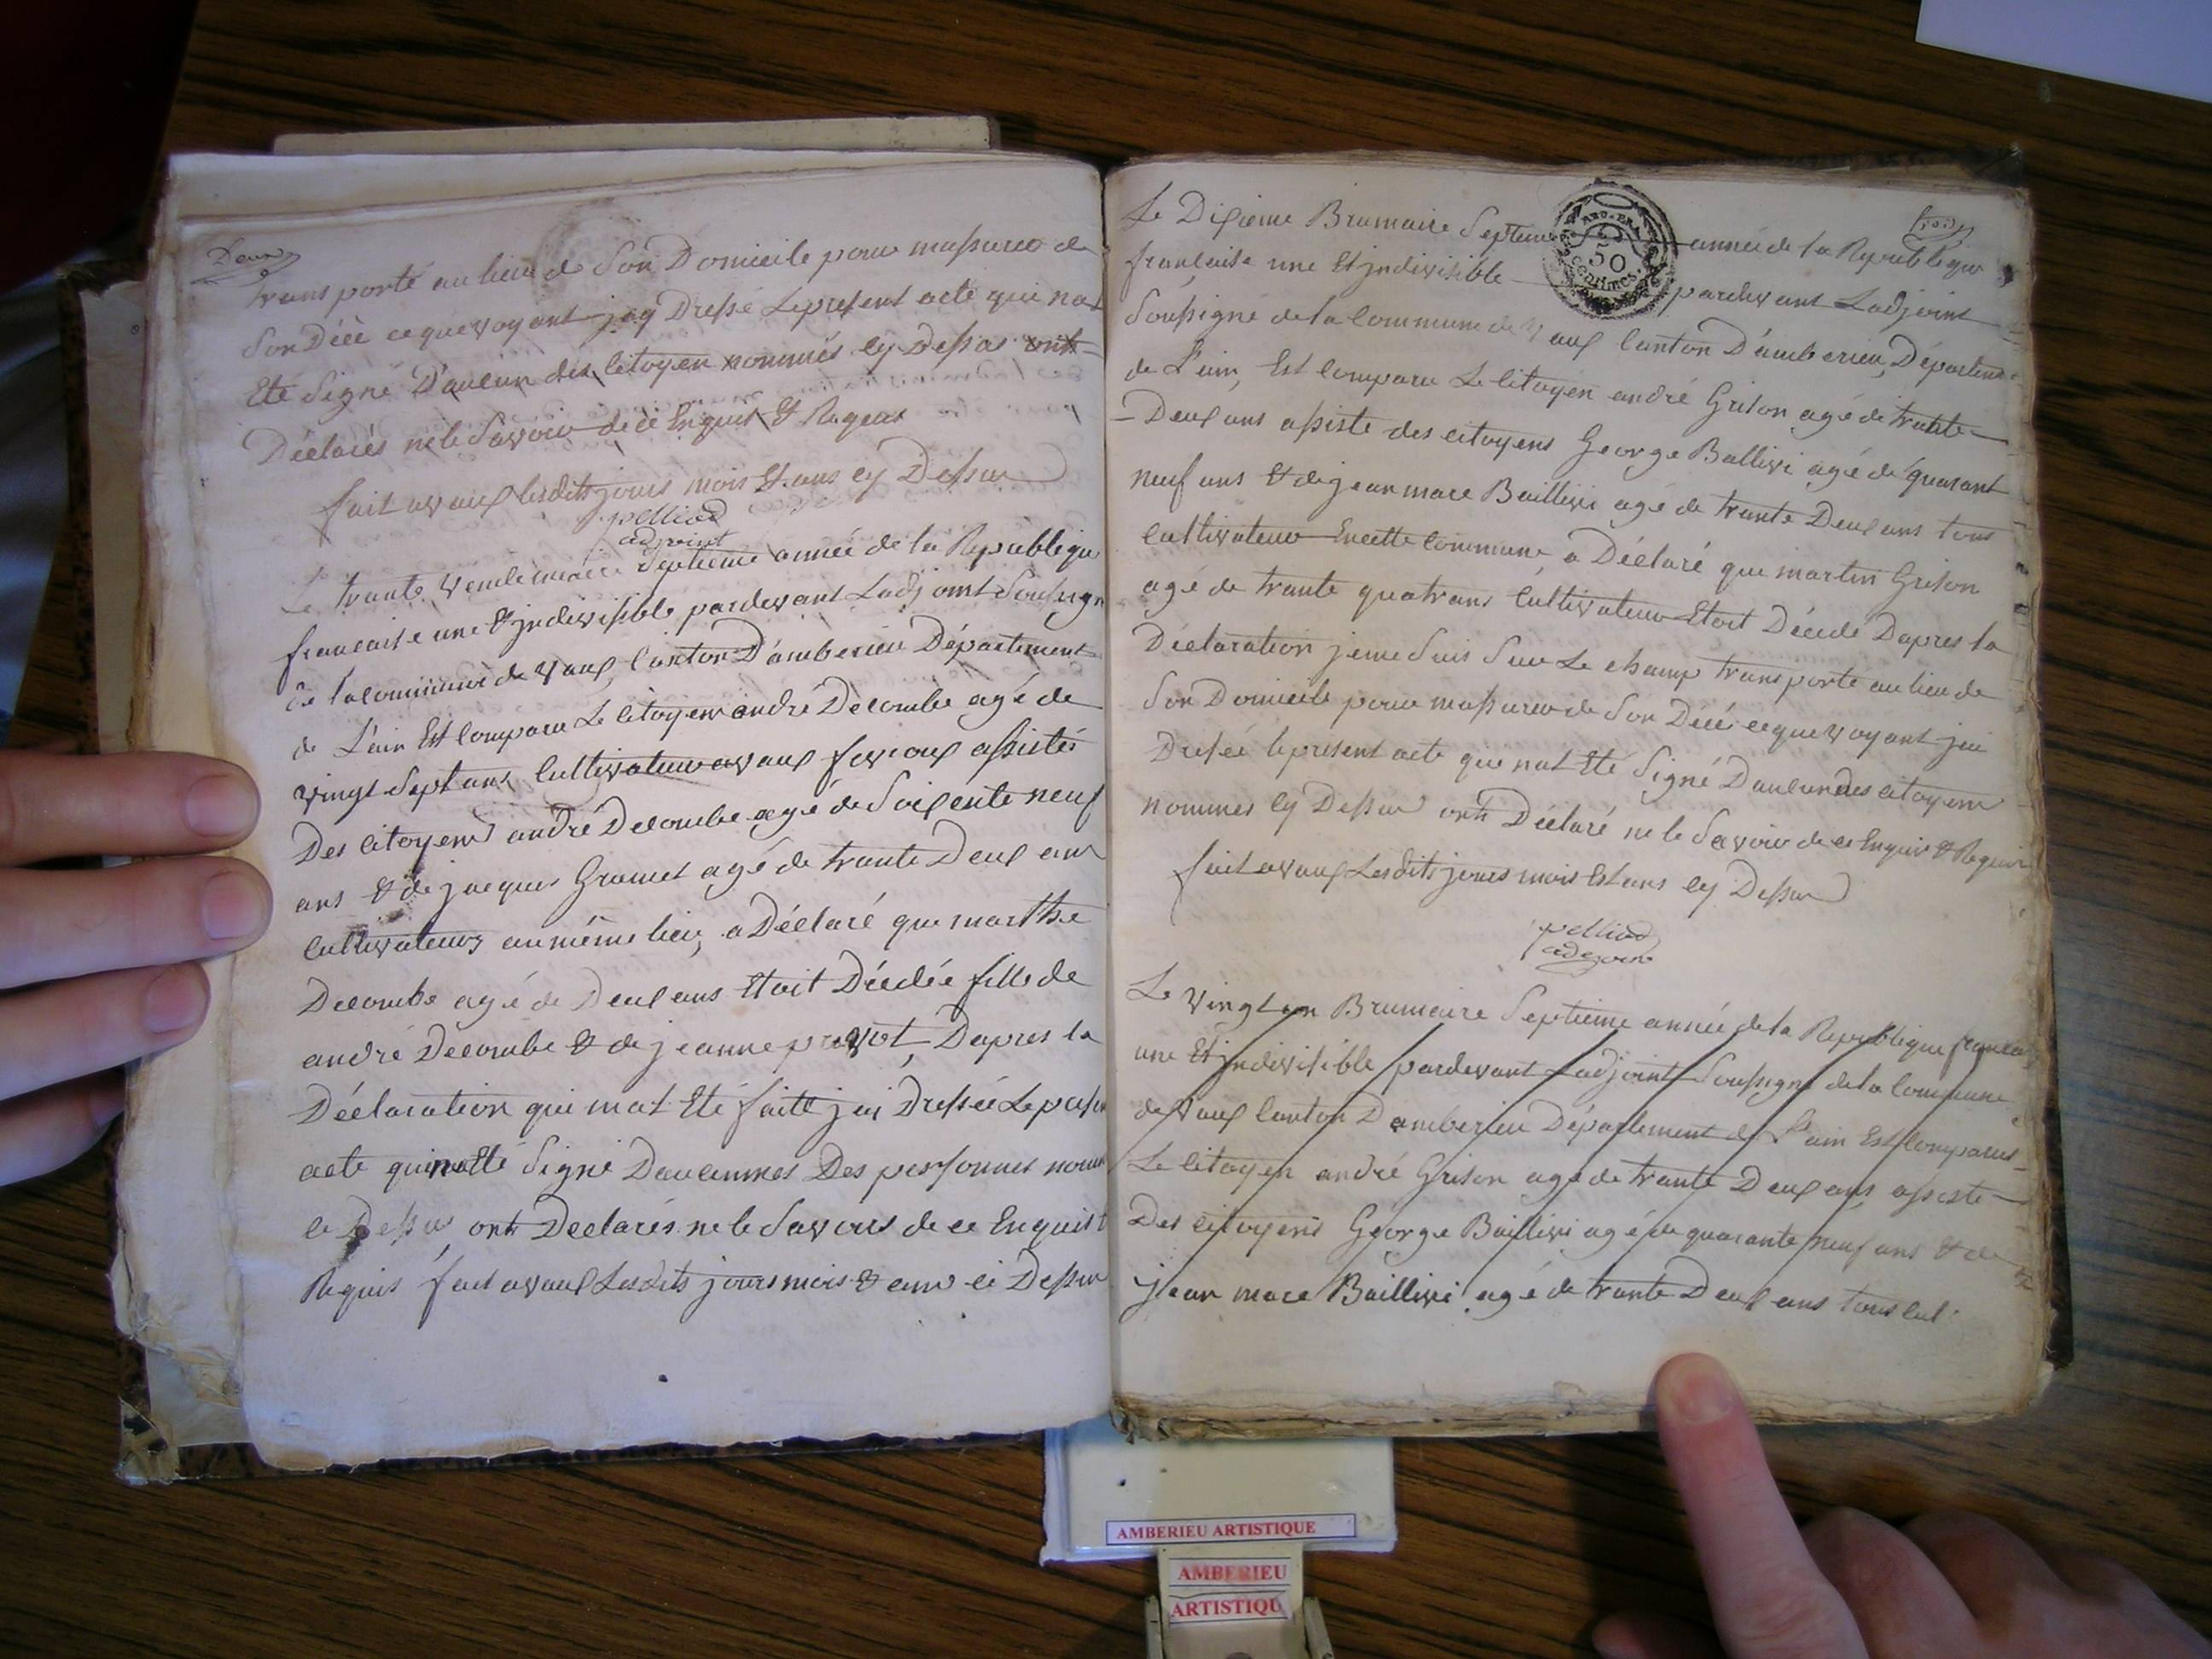 Deux
transporté au lieu de Son Domicile pour massurer de
Son Décé ce que voyant jay Dressé Le present acte qui nat
Eté Signé D'aucun des Citoyen nommés cy Dessas ont
Déclarés ne le Savoir de ce Enquis Et Requis
fait a vaux lesdits jours mois Et ans cy Dessu
pelliod
adjoint
Le trante Vendemiaire Septieme année de la Republique
francaise une Et jndivisible pardevant Ladjoint Soussigne
de la commune de Vaux, Canton D'amberieu Département
de L'ain Est Comparu Le Citoyen andré Decombe agé de
vingt Sept ans Cultivateur a vaux assistés
Des Citoyens andré Decombe agé de Soixente neuf
ans Et de jacques Gramet agé de trante Deux ans
Cultivateurs au même lieu, a Déclaré que marthe
Decombe agé de Deux ans Etoit Décédée fille de
andré Decombe Et de jeanne prevot, Dapres la
Déclaration qui mat Eté faite jai Dressée Le presen
acte qui natté Signé Daucunnes Des personnes nomm
ci Dessu ont Declarés ne le Savoir de ce Enquis t
Requis fait a vaux Lesdits jours mois Et ans ci Dessu
trois
Le Dixieme Brumaire Septieme année de la Republique
50
centimes
francaise une Et jndivisible pardevant Ladjoint
Soussigné de la Commune de Vaux Canton D'amberieu, Départeme
de L'ain, Est Comparu Le Citoyen andré Grison agé de trante
Deux ans assisté des citoyens George Ballivi agé de quarant
neuf ans Et de jean marc Baillivi agé de trante Deux ans tous
cultivateur En cette Commune, a Déclaré que martin Grison
agé de trante quatrans Cultivateur Etoit Décédé Dapres la
Déclaration je me Suis Sur Le champ transporté au lieu de
Son Domicile pour massurer de Son Décé ce que voyant jai
Dressée le present acte qui nat Eté Signé Daucun des citoyens
nommes cy Dessu ont Déclaré ne le Savoir de ce Enquis Et Requis
fait a vaux Lesdits jours mois Et ans cy Dessu
pelliod
adjoint
Le vingt un Brumaire Septieme année de la Republique francai
une Et jndivisible pardevant Ladjoint Soussigné de la Commune
de vaux Canton Damberieu Département de L'ain Est Comparus
Le Citoyen andré Grison agé de trante Deux ans assisté
Des Citoyens George Baillivi agé de quarante neuf ans Et de
jean marc Baillivi agé de trante Deux ans tous cul
AMBERIEU ARTISTIQUE
AMBERIEU
ARTISTIQU